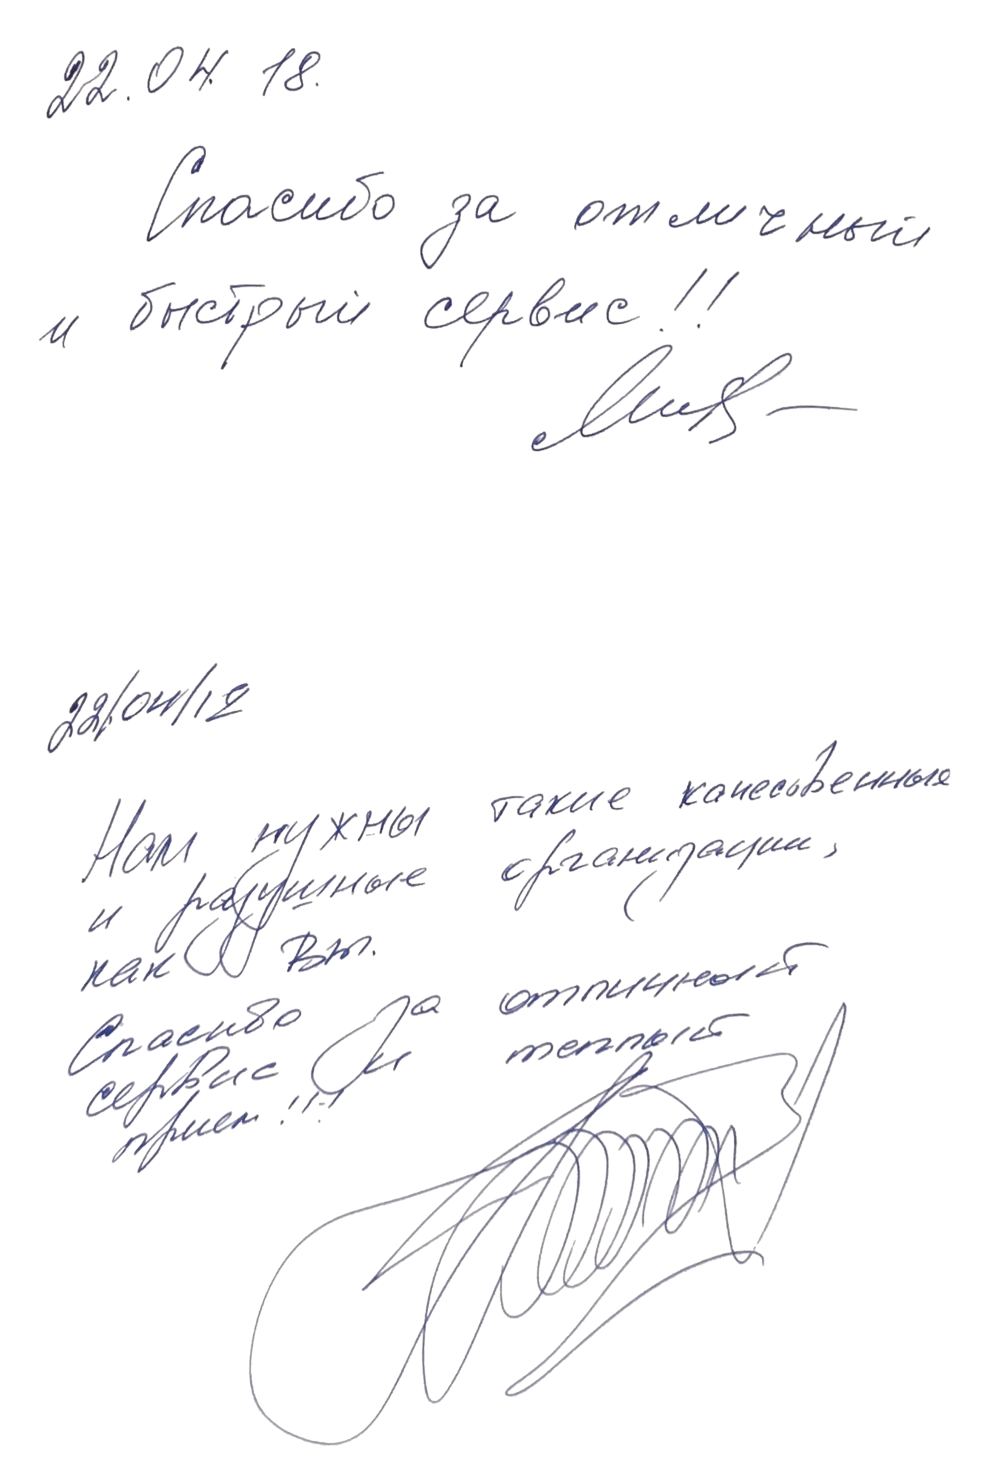 22.04.18.
Спасибо за отличный
и быстрый сервис!!
22/04/12
Нам нужны такие качесвенные
и разумные организации,
как Вы.
Спасибо за отличный
сервис и теплый
прием!!!